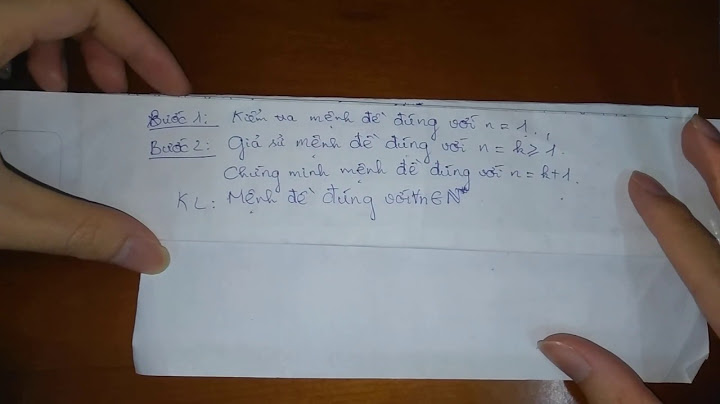 Bước 1: Kiểm tra mệnh đề đúng với n = 1.
Bước 2: Giả sử mệnh đề đúng với n = k ≥ 1.
Chứng minh mệnh đề đúng với n = k + 1.
KL: Mệnh đề đúng với ∀n ∈ N*